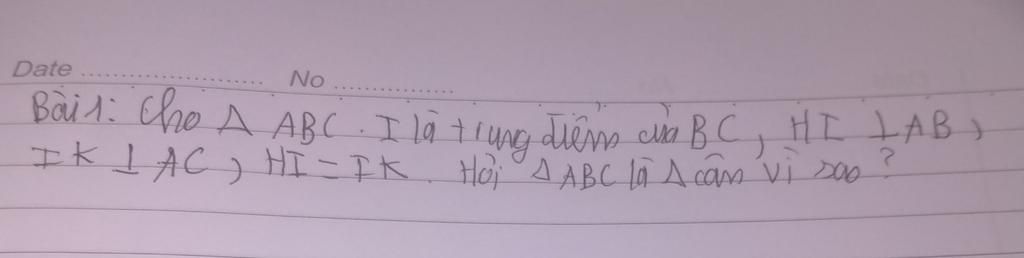 Date ........................ No ................
Bài 1: Cho Δ ABC. I là trung điểm của BC, HI ⊥ AB,
IK ⊥ AC, HI = IK. Hỏi Δ ABC là Δ cân vì sao?